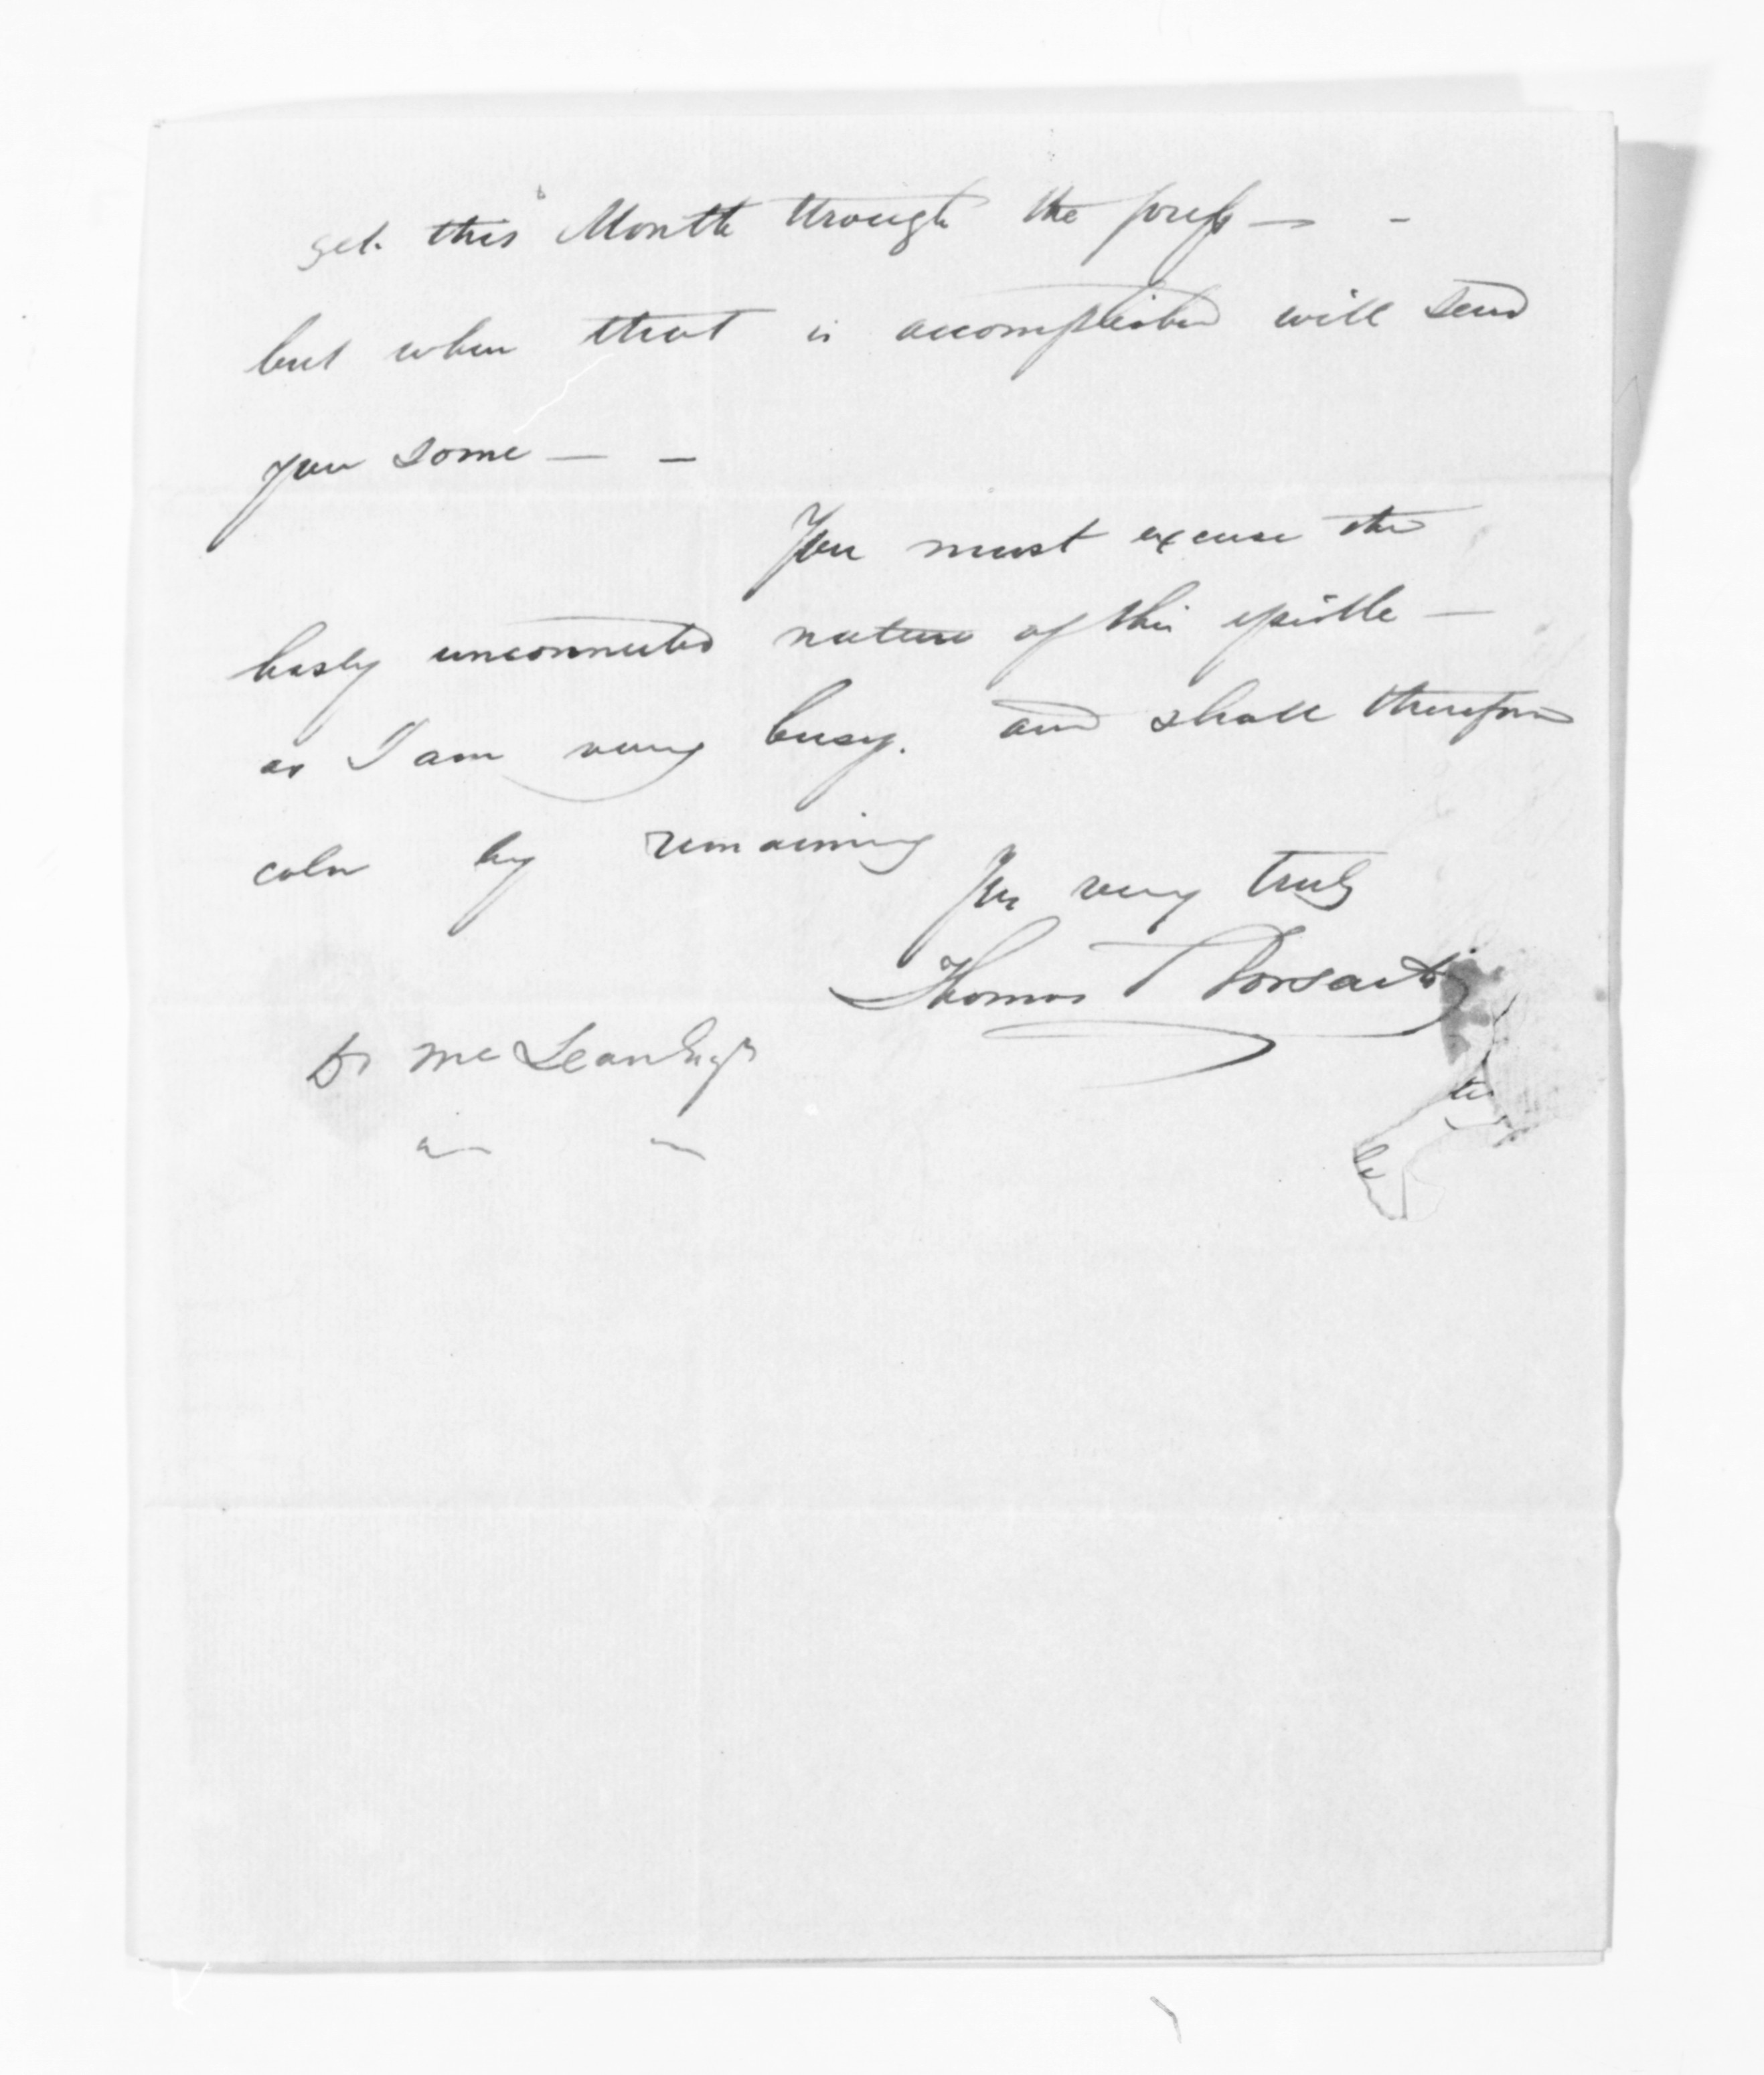 get this Month through the press — -
but when that is accomplished will send
you some — -
You must excuse the
hasty unconnected nature of this epistle —
as I am very busy. and shall therefore
by remaining
Yrs very truly
Thomas
Dr McLean